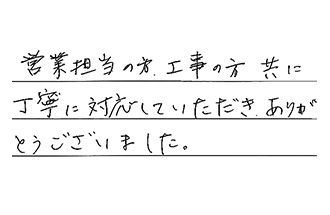 営業担当の方、工事の方 共に
丁寧に対応していただき、ありが
とうございました。